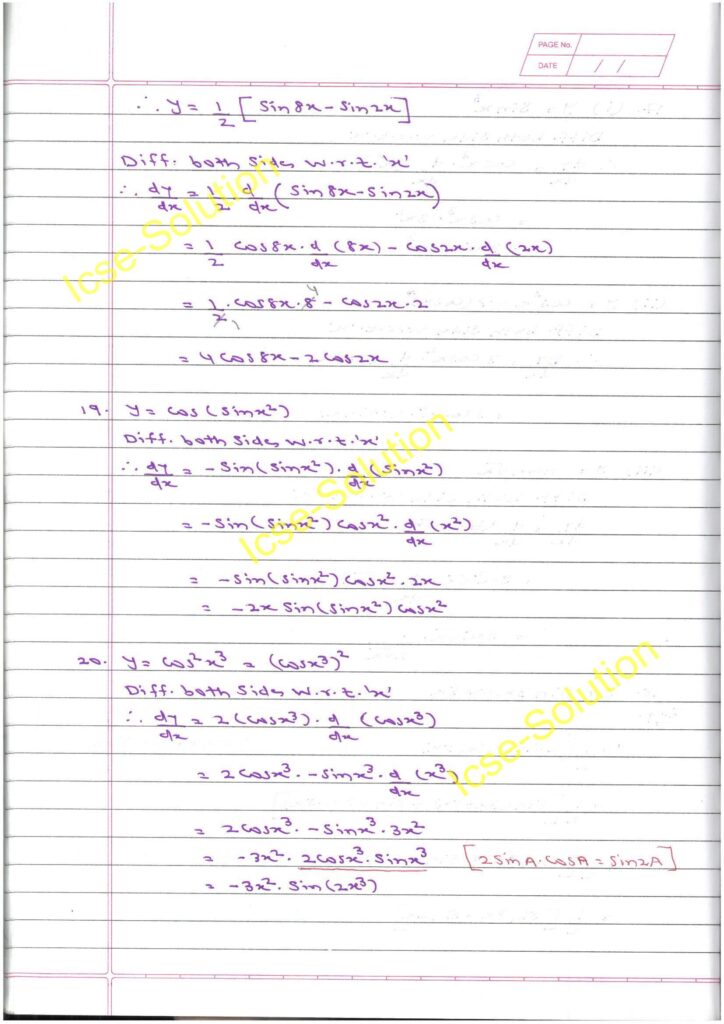 PAGE No.
DATE / /
∴ y = 1/2 [Sin8x - Sin2x]
Diff. both Sides w.r.t. 'x'
∴ dy/dx = 1/2 d/dx (Sin8x - Sin2x)
= 1/2 cos8x · d/dx (8x) - cos2x · d/dx (2x)
= 1/2 · cos8x · 8 4 - cos2x · 2
1
= 4cos8x - 2cos2x
19. y = cos(sinx²)
Diff. both Sides w.r.t. 'x'
∴ dy/dx = -Sin(sinx²) · d/dx (sinx²)
= -Sin(sinx²) cosx² · d/dx (x²)
= -Sin(sinx²) cosx² · 2x
= -2x Sin(sinx²) cosx²
20. y = cos²x³ = (cosx³)²
Diff. both Sides w.r.t. 'x'
∴ dy/dx = 2(cosx³) · d/dx (cosx³)
= 2cosx³ · -sinx³ · d/dx (x³)
= 2cosx³ · -Sinx³ · 3x²
= -3x² · 2cosx³ · sinx³ [2SinA·cosA = Sin2A]
= -3x² · Sin(2x³)
Icse-Solution
Icse-Solution
Icse-Solution